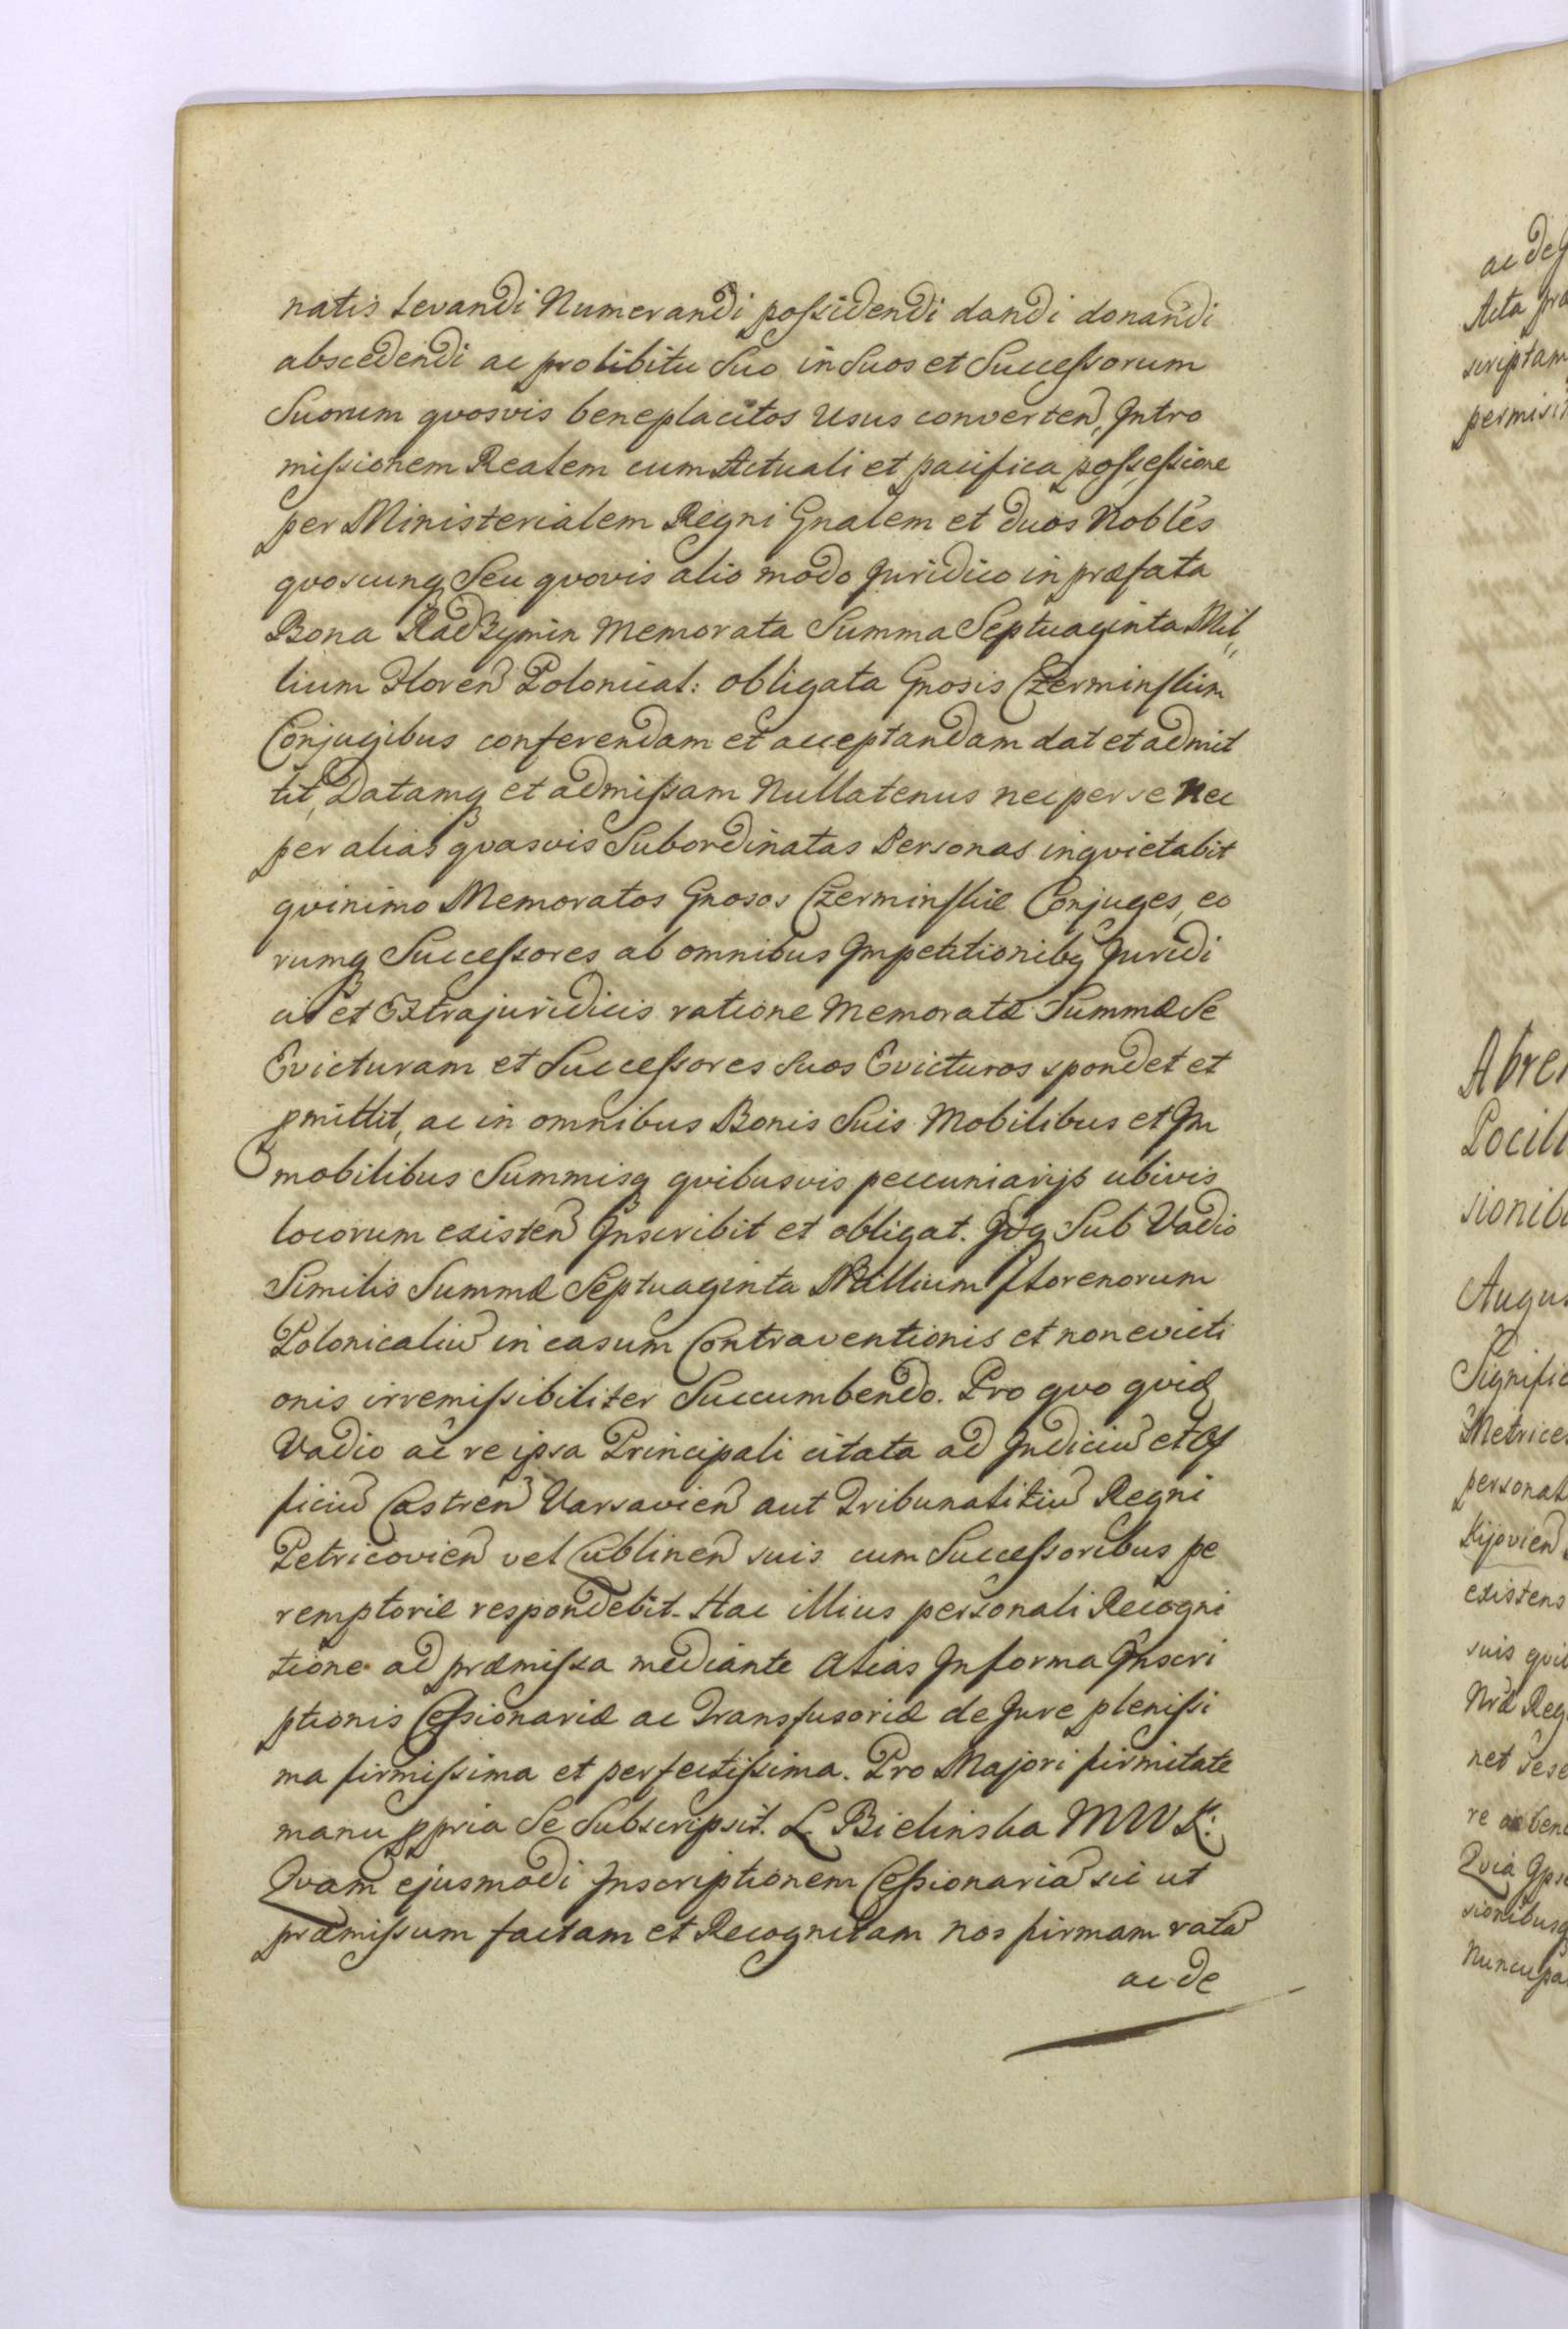 natis Levandi Numerandi possidendi dandi donandi
abscedendi ac pro libitu Suo in Suos et Successorum
Suorum qvosvis beneplacitos Usus converten, Intro
missionem Realem cum Actuali et pacifica possessione
per Ministerialem Regni Gnalem et duos Nobles
qvoscunq Seu qvovis alio modo Juridico in præfata
Bona Radzymin Memorata Summa Septuaginta Mil„
lium Floren Polonical: obligata Gnosis Czerminskim
Conjugibus conferendam et acceptandam dat et admit
tit, Datamq et admissam Nullatenus nec per se Nec
per alias qvasvis Subordinatas Personas inqvietabit
qvinimo Memoratos Gnosos Czerminskie Conjuges, eo
rumq Successores ab omnibus Impetitionibq Juridi
cis et Extrajuridicis ratione Memoratæ Summæ Se
Evicturam et Successores Suos Evicturos spondet et
pmittit, ac in omnibus Bonis Suis Mobilibus et Im
mobilibus Summisq qvibusvis peccuniarijs ubivis
locorum existen Inscribit et obligat. Idq Sub Vadio
Similis Summæ Septuaginta Millium Florenorum
Polonicaliu in casum Contraventionis et non evicti
onis irremissibiliter Succumbendo. Pro qvo qvid
Vadio ac re ipsa Principali citata ad Judiciu et Of
ficiu Castren Varsavien aut Tribunalitiu Regni
Petricovien vel Lublinen suis cum Successoribus pe
remptorie respondebit. Hac illius personali Recogni
tione ad præmissa mediante Alias In forma Inscri
ptionis Cessionariæ ac Transfusoriæ de Jure plenissi
ma firmissima et perfectissima. Pro Majori firmitate
manu ppria Se Subscripsit. L Bielinska MWK:
Qvam ejusmodi Inscriptionem Cessionaria sic ut
præmissum factam et Recognitam nos firmam rata
ac de
ac de
Acta
scriptam
Abre
Pocil
sionib
Augus
Signific
Metrice
personal
Kijovien
existens
suis qvi
Nræ Reg
net Sese
re ac ben
Qvia Ips
sionibusq
Nuncupa